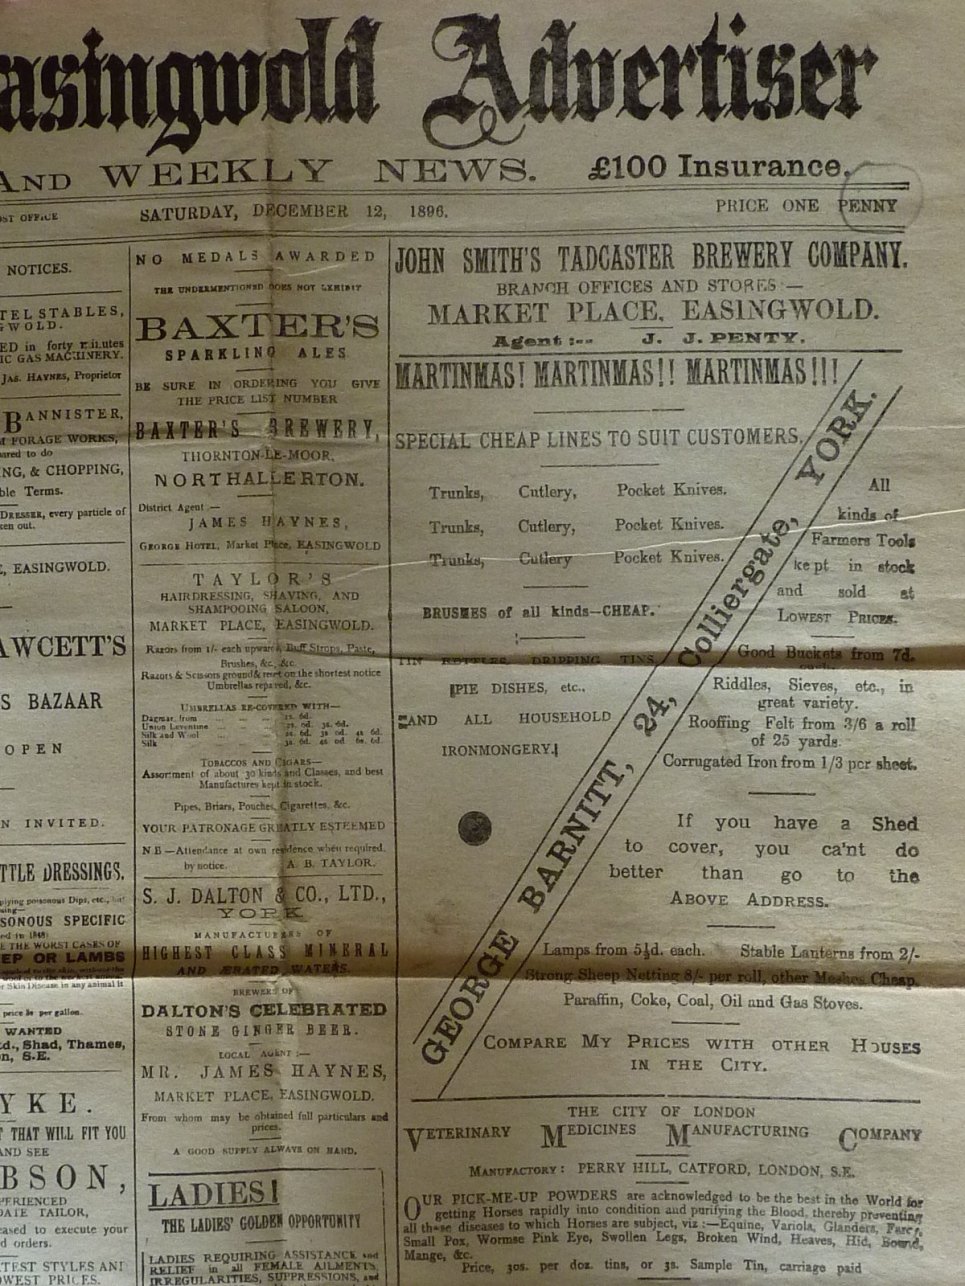 asingwold Advertiser
AND WEEKLY NEWS. £100 Insurance.
OFFICE SATURDAY, DECEMBER 12, 1896. PRICE ONE PENNY
NOTICES.
TEL STABLES,
GWOLD.
ED in forty minutes
IC GAS MACHINERY.
JAS. HAYNES, Proprietor
BANNISTER,
M FORAGE WORKS,
ared to do
NG, & CHOPPING,
ble Terms.
DRESSER, every particle of
ken out.
E, EASINGWOLD.
AWCETT'S
S BAZAAR
OPEN
N INVITED.
TTLE DRESSINGS.
plying poisonous Dips, etc.,
SONOUS SPECIFIC
ed in 1848)
E THE WORST CASES OF
EP OR LAMBS
r Skin Disease in any animal it
price 8s per gallon.
WANTED
td., Shad, Thames,
on, S.E.
YKE.
T THAT WILL FIT YOU
AND SEE
BSON,
PERIENCED
DATE TAILOR,
eased to execute your
d orders.
TEST STYLES AN
OWEST PRICES.
NO MEDALS AWARDED
THE UNDERMENTIONED DOES NOT EXHIBIT
BAXTER'S
SPARKLING ALES
BE SURE IN ORDERING YOU GIVE
THE PRICE LIST NUMBER
BAXTER'S BREWERY,
THORNTON-LE-MOOR,
NORTHALLERTON.
District Agent —
JAMES HAYNES,
GEORGE HOTEL, Market Place, EASINGWOLD
TAYLOR'S
HAIRDRESSING, SHAVING, AND
SHAMPOOING SALOON,
MARKET PLACE, EASINGWOLD.
Razors from 1/- each upward, Buff Strops, Paste,
Brushes, &c., &c.
Razors & Scissors ground & reset on the shortest notice
Umbrellas repaired, &c.
UMBRELLAS RE-COVERED WITH—
Dagmar, from ... 1s. 6d.
Union Leventine ... 2s. 6d. 3s. 6d.
Silk and Wool ... 2s. 6d. 3s. 0d. 4s 6d.
Silk ... 3s. 6d. 4s 0d 6s. 6d.
TOBACCOS AND CIGARS—
Assortment of about 30 kinds and Classes, and best
Manufactures kept in stock.
Pipes, Briars, Pouches, Cigarettes, &c.
YOUR PATRONAGE GREATLY ESTEEMED
N B—Attendance at own residence when required,
by notice. A. B. TAYLOR.
S. J. DALTON & CO., LTD.,
YORK
MANUFACTURERS OF
HIGHEST CLASS MINERAL
AND ÆRATED WATERS.
BREWERS OF
DALTON'S CELEBRATED
STONE GINGER BEER.
LOCAL AGENT:—
MR. JAMES HAYNES,
MARKET PLACE, EASINGWOLD.
From whom may be obtained full particulars and
prices.
A GOOD SUPPLY ALWAYS ON HAND.
LADIES!
THE LADIES' GOLDEN OPPORTUNITY
LADIES REQUIRING ASSISTANCE and
RELIEF in all FEMALE AILMENTS,
IRREGULARITIES, SUPPRESSIONS, and
JOHN SMITH'S TADCASTER BREWERY COMPANY.
BRANCH OFFICES AND STORES:—
MARKET PLACE, EASINGWOLD.
Agent:-- J. J. PENTY.
MARTINMAS! MARTINMAS!! MARTINMAS!!!
SPECIAL CHEAP LINES TO SUIT CUSTOMERS.
Trunks, Cutlery, Pocket Knives.
Trunks, Cutlery, Pocket Knives.
Trunks, Cutlery Pocket Knives.
BRUSHES of all kinds—CHEAP.
TIN KETTLES, DRIPPING TINS,
PIE DISHES, etc.,
AND ALL HOUSEHOLD
IRONMONGERY.
GEORGE BARNITT, 24, Colliergate, YORK.
All
kinds of
Farmers Tools
kept in stock
and sold at
LOWEST PRICES.
Good Buckets from 7d.
each.
Riddles, Sieves, etc., in
great variety.
Rooffing Felt from 3/6 a roll
of 25 yards.
Corrugated Iron from 1/3 per sheet.
If you have a Shed
to cover, you ca'nt do
better than go to the
ABOVE ADDRESS.
Lamps from 5½d. each. Stable Lanterns from 2/-
Strong Sheep Netting 8/- per roll, other Meshes Cheap.
Paraffin, Coke, Coal, Oil and Gas Stoves.
COMPARE MY PRICES WITH OTHER HOUSES
IN THE CITY.
THE CITY OF LONDON
VETERINARY MEDICINES MANUFACTURING COMPANY
MANUFACTORY: PERRY HILL, CATFORD, LONDON, S.E.
OUR PICK-ME-UP POWDERS are acknowledged to be the best in the World for
getting Horses rapidly into condition and purifying the Blood, thereby preventing
all those diseases to which Horses are subject, viz:—Equine, Variola, Glanders, Farcy,
Small Pox, Wormse Pink Eye, Swollen Legs, Broken Wind, Heaves, Hid, Bound,
Mange, &c.
Price, 30s. per doz. tins, or 3s. Sample Tin, carriage paid